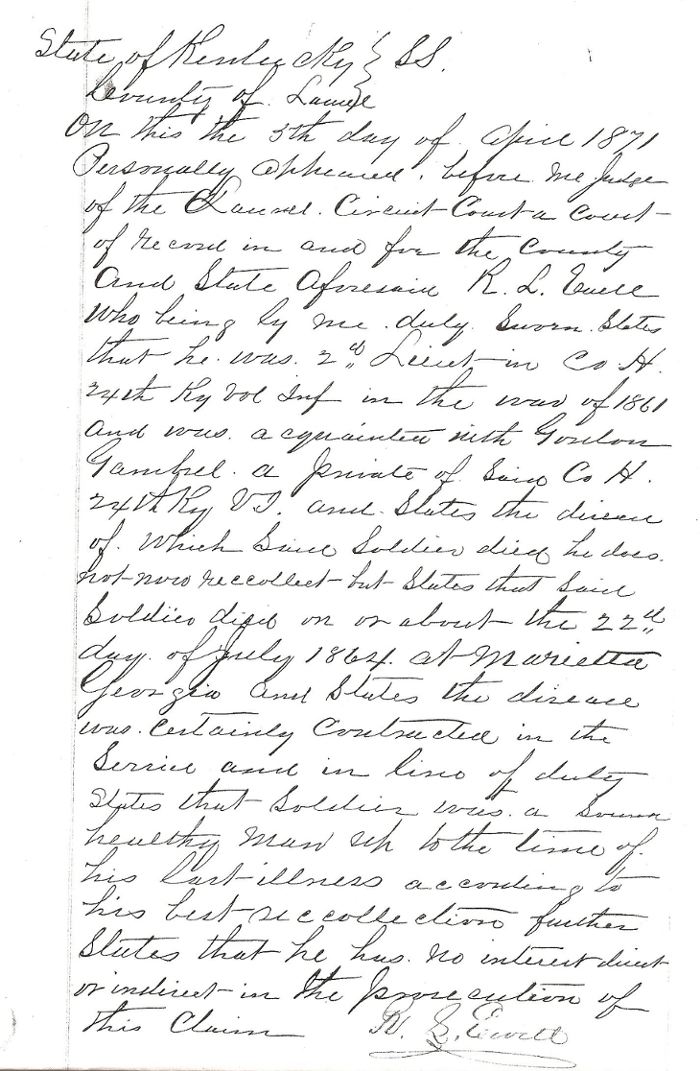 State of Kentucky } SS.
County of Laurel
On this the 5th day of April 1871
Personally appeared. before me Judge
of the Laurel. Circuit Court a Court
of record in and for the County
And State Aforesaid R. L. Ewell
Who being by me. duly. Sworn. States
that he. was. 2nd Lieut in Co H.
24th Ky Vol Inf in the war of 1861
and was. acquainted with Gordon
Gambrel. a private of Said Co H.
24th Ky V I. and. States the disease
of. Which Said Soldier died he does.
not now reccollect but States that Said
Soldier died on or about the 22nd
day. of July 1864. at Marietta
Georgia and States the disease
was. Certainly Contracted in the
Service and in line of duty
States that Soldier was. a Sound
healthy Man up to the time of.
his last illness according to
his best reccollection further
States that he has. no interest direct
or indirect in the prosecution of
this Claim R. L. Ewell